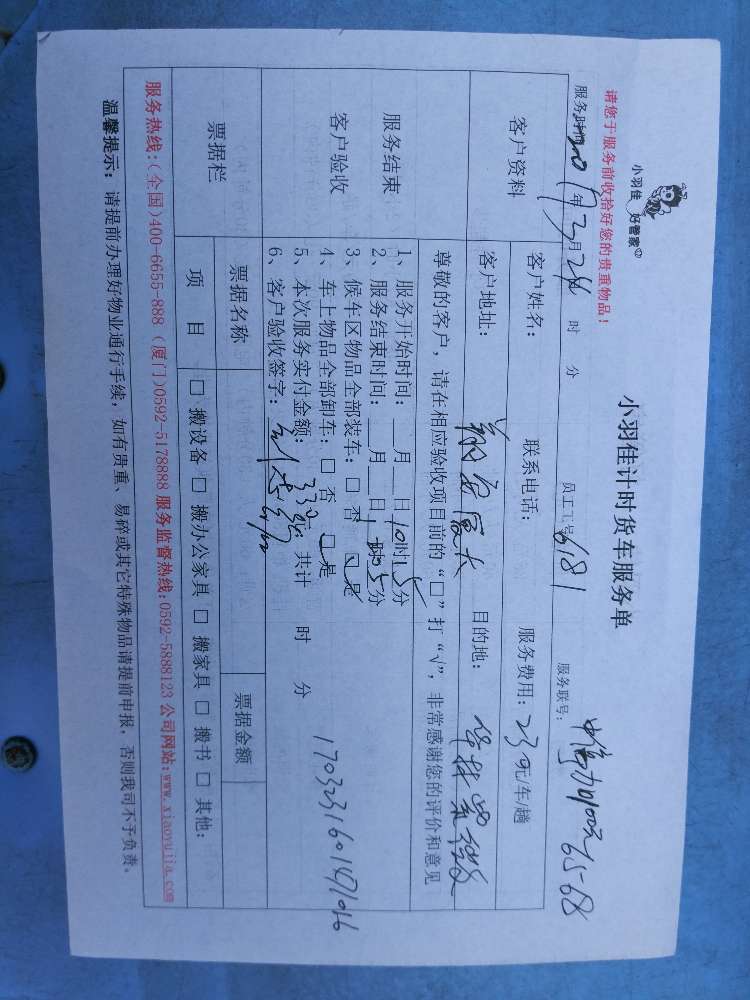 小羽佳 好管家
请您于服务前收拾好您的贵重物品！
小羽佳计时货车服务单
服务时间 年3月24日 时 分 员工工号6181 服务联号： 65-68
客户资料
客户姓名： 联系电话： 服务费用：230元/车/趟
客户地址： 翔安厦大 目的地：
尊敬的客户，请在相应验收项目前的“□”打“√”，非常感谢您的评价和意见
服务结束
客户验收
1、服务开始时间：__月__日10时15分
2、服务结束时间：__月__日 时05分
3、候车区物品全部装车：□ 否 □ 是
4、车上物品全部卸车：□ 否 □ 是
5、本次服务实付金额：330元 共计 时 分
6、客户验收签字：
1703231601471016
票据栏
票据名称 票据金额
项 目 □ 搬设备 □ 搬办公家具 □ 搬家具 □ 搬书 □ 其他：
服务热线：(全国)400-6655-888 (厦门)0592-5178888 服务监督热线：0592-5888123 公司网站：www.xiaoyujia.com
温馨提示：请提前办理好物业通行手续，如有贵重、易碎或其它特殊物品请提前申报，否则我司不予负责。